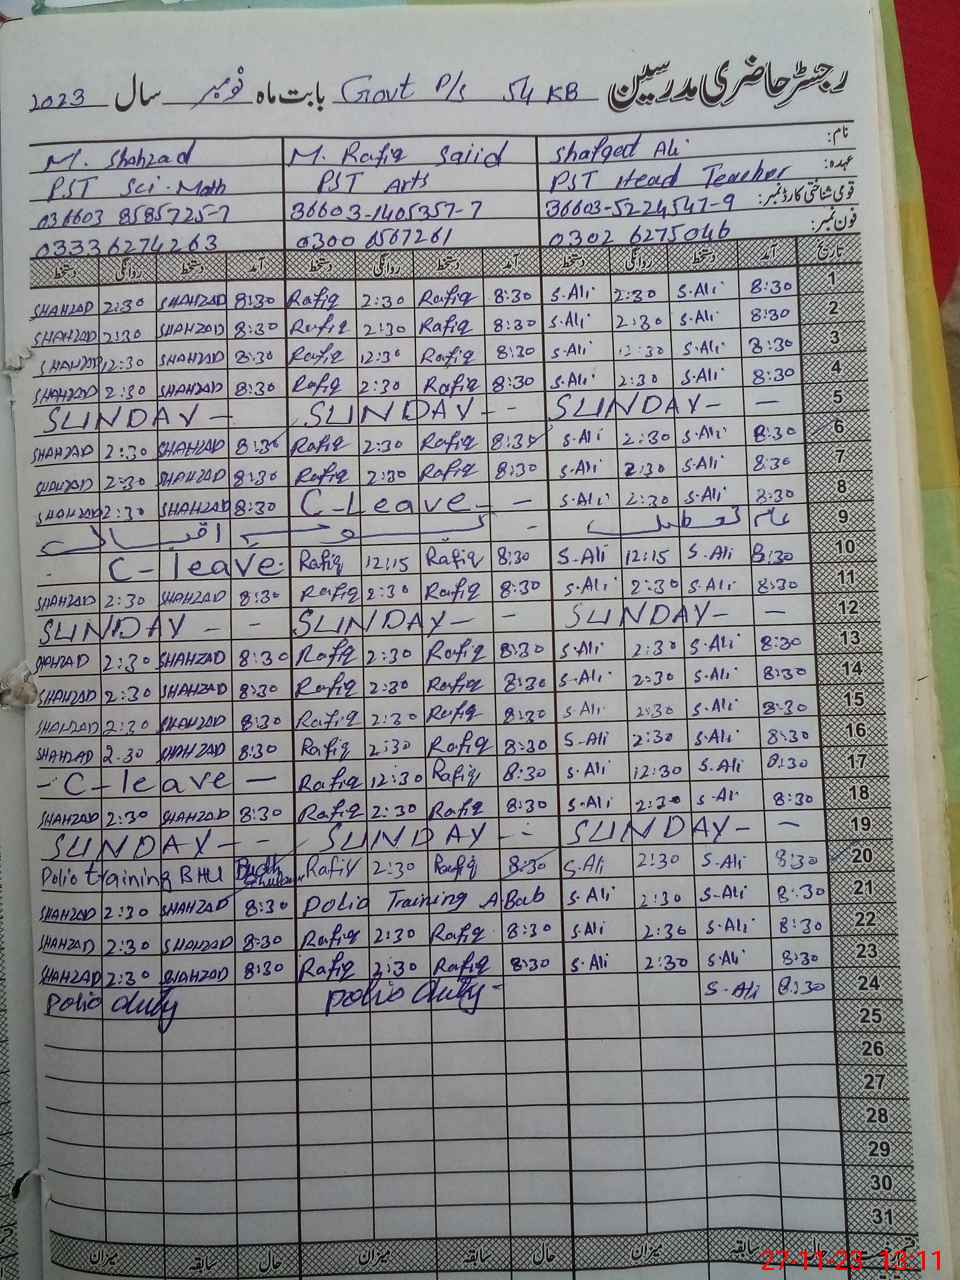 رجسٹر حاضری مدرسین Govt P/s 54 KB بابت ماہ نومبر سال 2023
نام: Shafqet Ali M. Rafiq Sajid M. Shahzad
عہدہ: PST Head Teacher PST Arts PST Sci-Math
قومی شناختی کارڈ نمبر: 36603-5224547-9 36603-1405357-7 036603 8585725-7
فون نمبر: 0302 6275046 0300 6567261 03336274263
تاریخ آمد دستخط روانگی دستخط آمد دستخط روانگی دستخط آمد دستخط روانگی دستخط
1 8:30 S.Ali 2:30 S.Ali 8:30 Rafiq 2:30 Rafiq 8:30 SHAHZAD 2:30 SHAHZAD
2 8:30 S.Ali 2:30 S.Ali 8:30 Rafiq 2:30 Rafiq 8:30 SHAHZAD 2:30 SHAHZAD
3 8:30 S.Ali 12:30 S.Ali 8:30 Rafiq 12:30 Rafiq 8:30 SHAHZAD 12:30 SHAHZAD
4 8:30 S.Ali 2:30 S.Ali 8:30 Rafiq 2:30 Rafiq 8:30 SHAHZAD 2:30 SHAHZAD
5 SUNDAY - - SUNDAY - - SUNDAY -
6 8:30 S.Ali 2:30 S.Ali 8:30 Rafiq 2:30 Rafiq 8:30 SHAHZAD 2:30 SHAHZAD
7 8:30 S.Ali 2:30 S.Ali 8:30 Rafiq 2:30 Rafiq 8:30 SHAHZAD 2:30 SHAHZAD
8 8:30 S.Ali 2:30 S.Ali C-Leave - - 8:30 SHAHZAD 2:30 SHAHZAD
9 عام تعطیل - یوم اقبال
10 8:30 S.Ali 12:15 S.Ali 8:30 Rafiq 12:15 Rafiq C-leave
11 8:30 S.Ali 2:30 S.Ali 8:30 Rafiq 2:30 Rafiq 8:30 SHAHZAD 2:30 SHAHZAD
12 SUNDAY - - SUNDAY - - SUNDAY - -
13 8:30 S.Ali 2:30 S.Ali 8:30 Rafiq 2:30 Rafiq 8:30 SHAHZAD 2:30 SHAHZAD
14 8:30 S.Ali 2:30 S.Ali 8:30 Rafiq 2:30 Rafiq 8:30 SHAHZAD 2:30 SHAHZAD
15 8:30 S.Ali 2:30 S.Ali 8:30 Rafiq 2:30 Rafiq 8:30 SHAHZAD 2:30 SHAHZAD
16 8:30 S.Ali 2:30 S.Ali 8:30 Rafiq 2:30 Rafiq 8:30 SHAHZAD 2.30 SHAHZAD
17 8:30 S.Ali 12:30 S.Ali 8:30 Rafiq 12:30 Rafiq - C-leave -
18 8:30 S.Ali 2:30 S.Ali 8:30 Rafiq 2:30 Rafiq 8:30 SHAHZAD 2:30 SHAHZAD
19 SUNDAY - - SUNDAY - - SUNDAY - -
20 8:30 S.Ali 2:30 S.Ali 8:30 Rafiq 2:30 Rafiq Polio training BHU Budh
21 8:30 S.Ali 2:30 S.Ali Polio Training A Bab 8:30 SHAHZAD 2:30 SHAHZAD
22 8:30 S.Ali 2:30 S.Ali 8:30 Rafiq 2:30 Rafiq 8:30 SHAHZAD 2:30 SHAHZAD
23 8:30 S.Ali 2:30 S.Ali 8:30 Rafiq 2:30 Rafiq 8:30 SHAHZAD 2:30 SHAHZAD
24 8:30 S.Ali polio duty - polio duty
25
26
27
28
29
30
31
حال سابقہ میزان حال سابقہ میزان حال سابقہ میزان
27-11-23 13:11